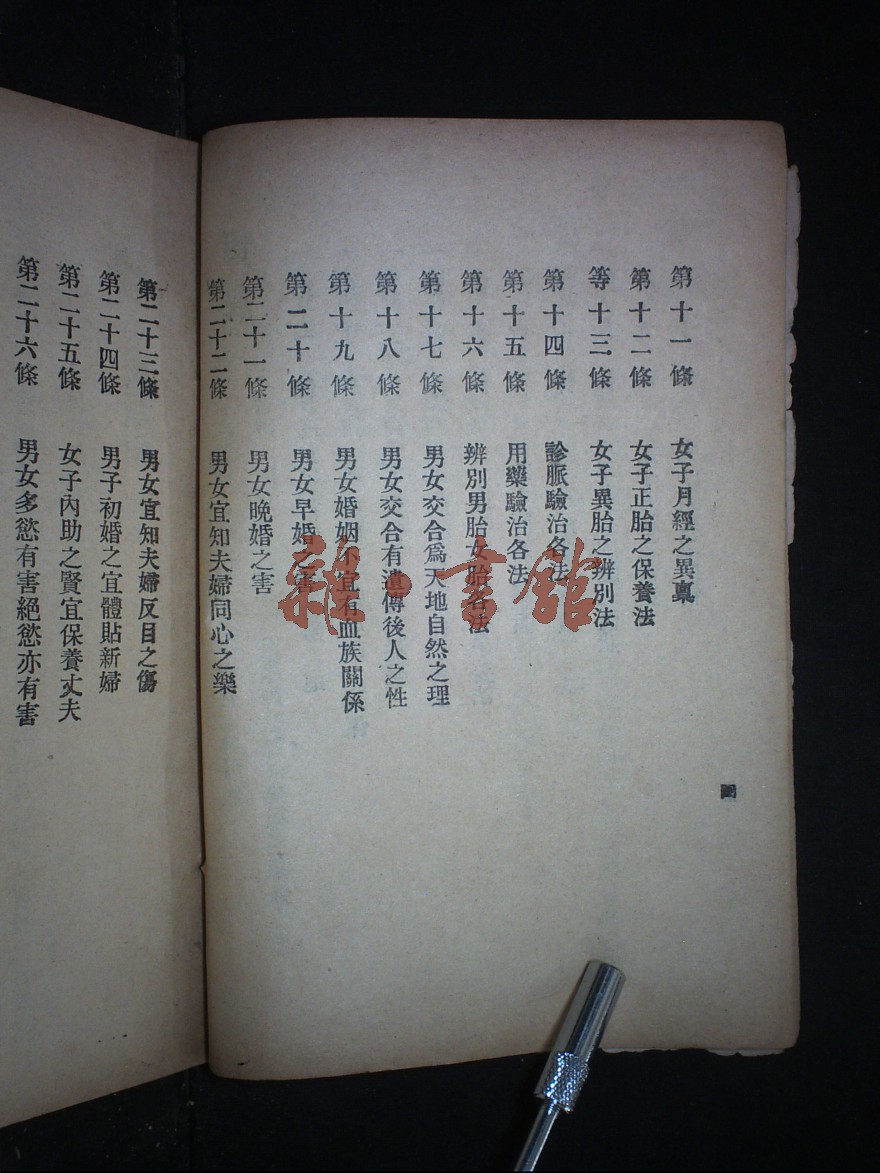 第十一條 女子月經之異稟
第十二條 女子正胎之保養法
等十三條 女子異胎之辨別法
第十四條 診脈驗治各法
第十五條 用藥驗治各法
第十六條 辨別男胎女胎各法
第十七條 男女交合爲天地自然之理
第十八條 男女交合有遺傳後人之性
第十九條 男女婚姻不宜有血族關係
第二十條 男女早婚之害
第二十一條 男女晚婚之害
第二十二條 男女宜知夫婦同心之樂
第二十三條 男女宜知夫婦反目之傷
第二十四條 男子初婚之宜體貼新婦
第二十五條 女子內助之賢宜保養丈夫
第二十六條 男女多慾有害絕慾亦有害
雜·書館